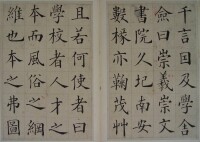 千言因及學舍
僉曰崇義崇文
書院久圮南安
數椽亦鞠茂草
且若何使者曰
學校者人才之
本而風俗之綱
維也本之弗圖